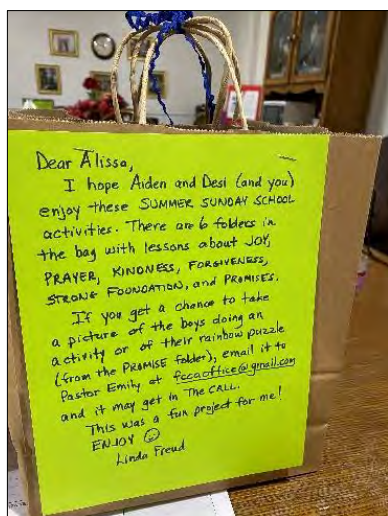 Dear Alissa,
I hope Aiden and Desi (and you)
enjoy these SUMMER SUNDAY SCHOOL
activities. There are 6 folders in
the bag with lessons about JOY,
PRAYER, KINDNESS, FORGIVENESS,
STRONG FOUNDATION, and PROMISES.
If you get a chance to take
a picture of the boys doing an
activity or of their rainbow puzzle
(from the PROMISE folder), email it to
Pastor Emily at fccaoffice@gmail.com
and it may get in THE CALL.
This was a fun project for me!
ENJOY ☺
Linda Freud